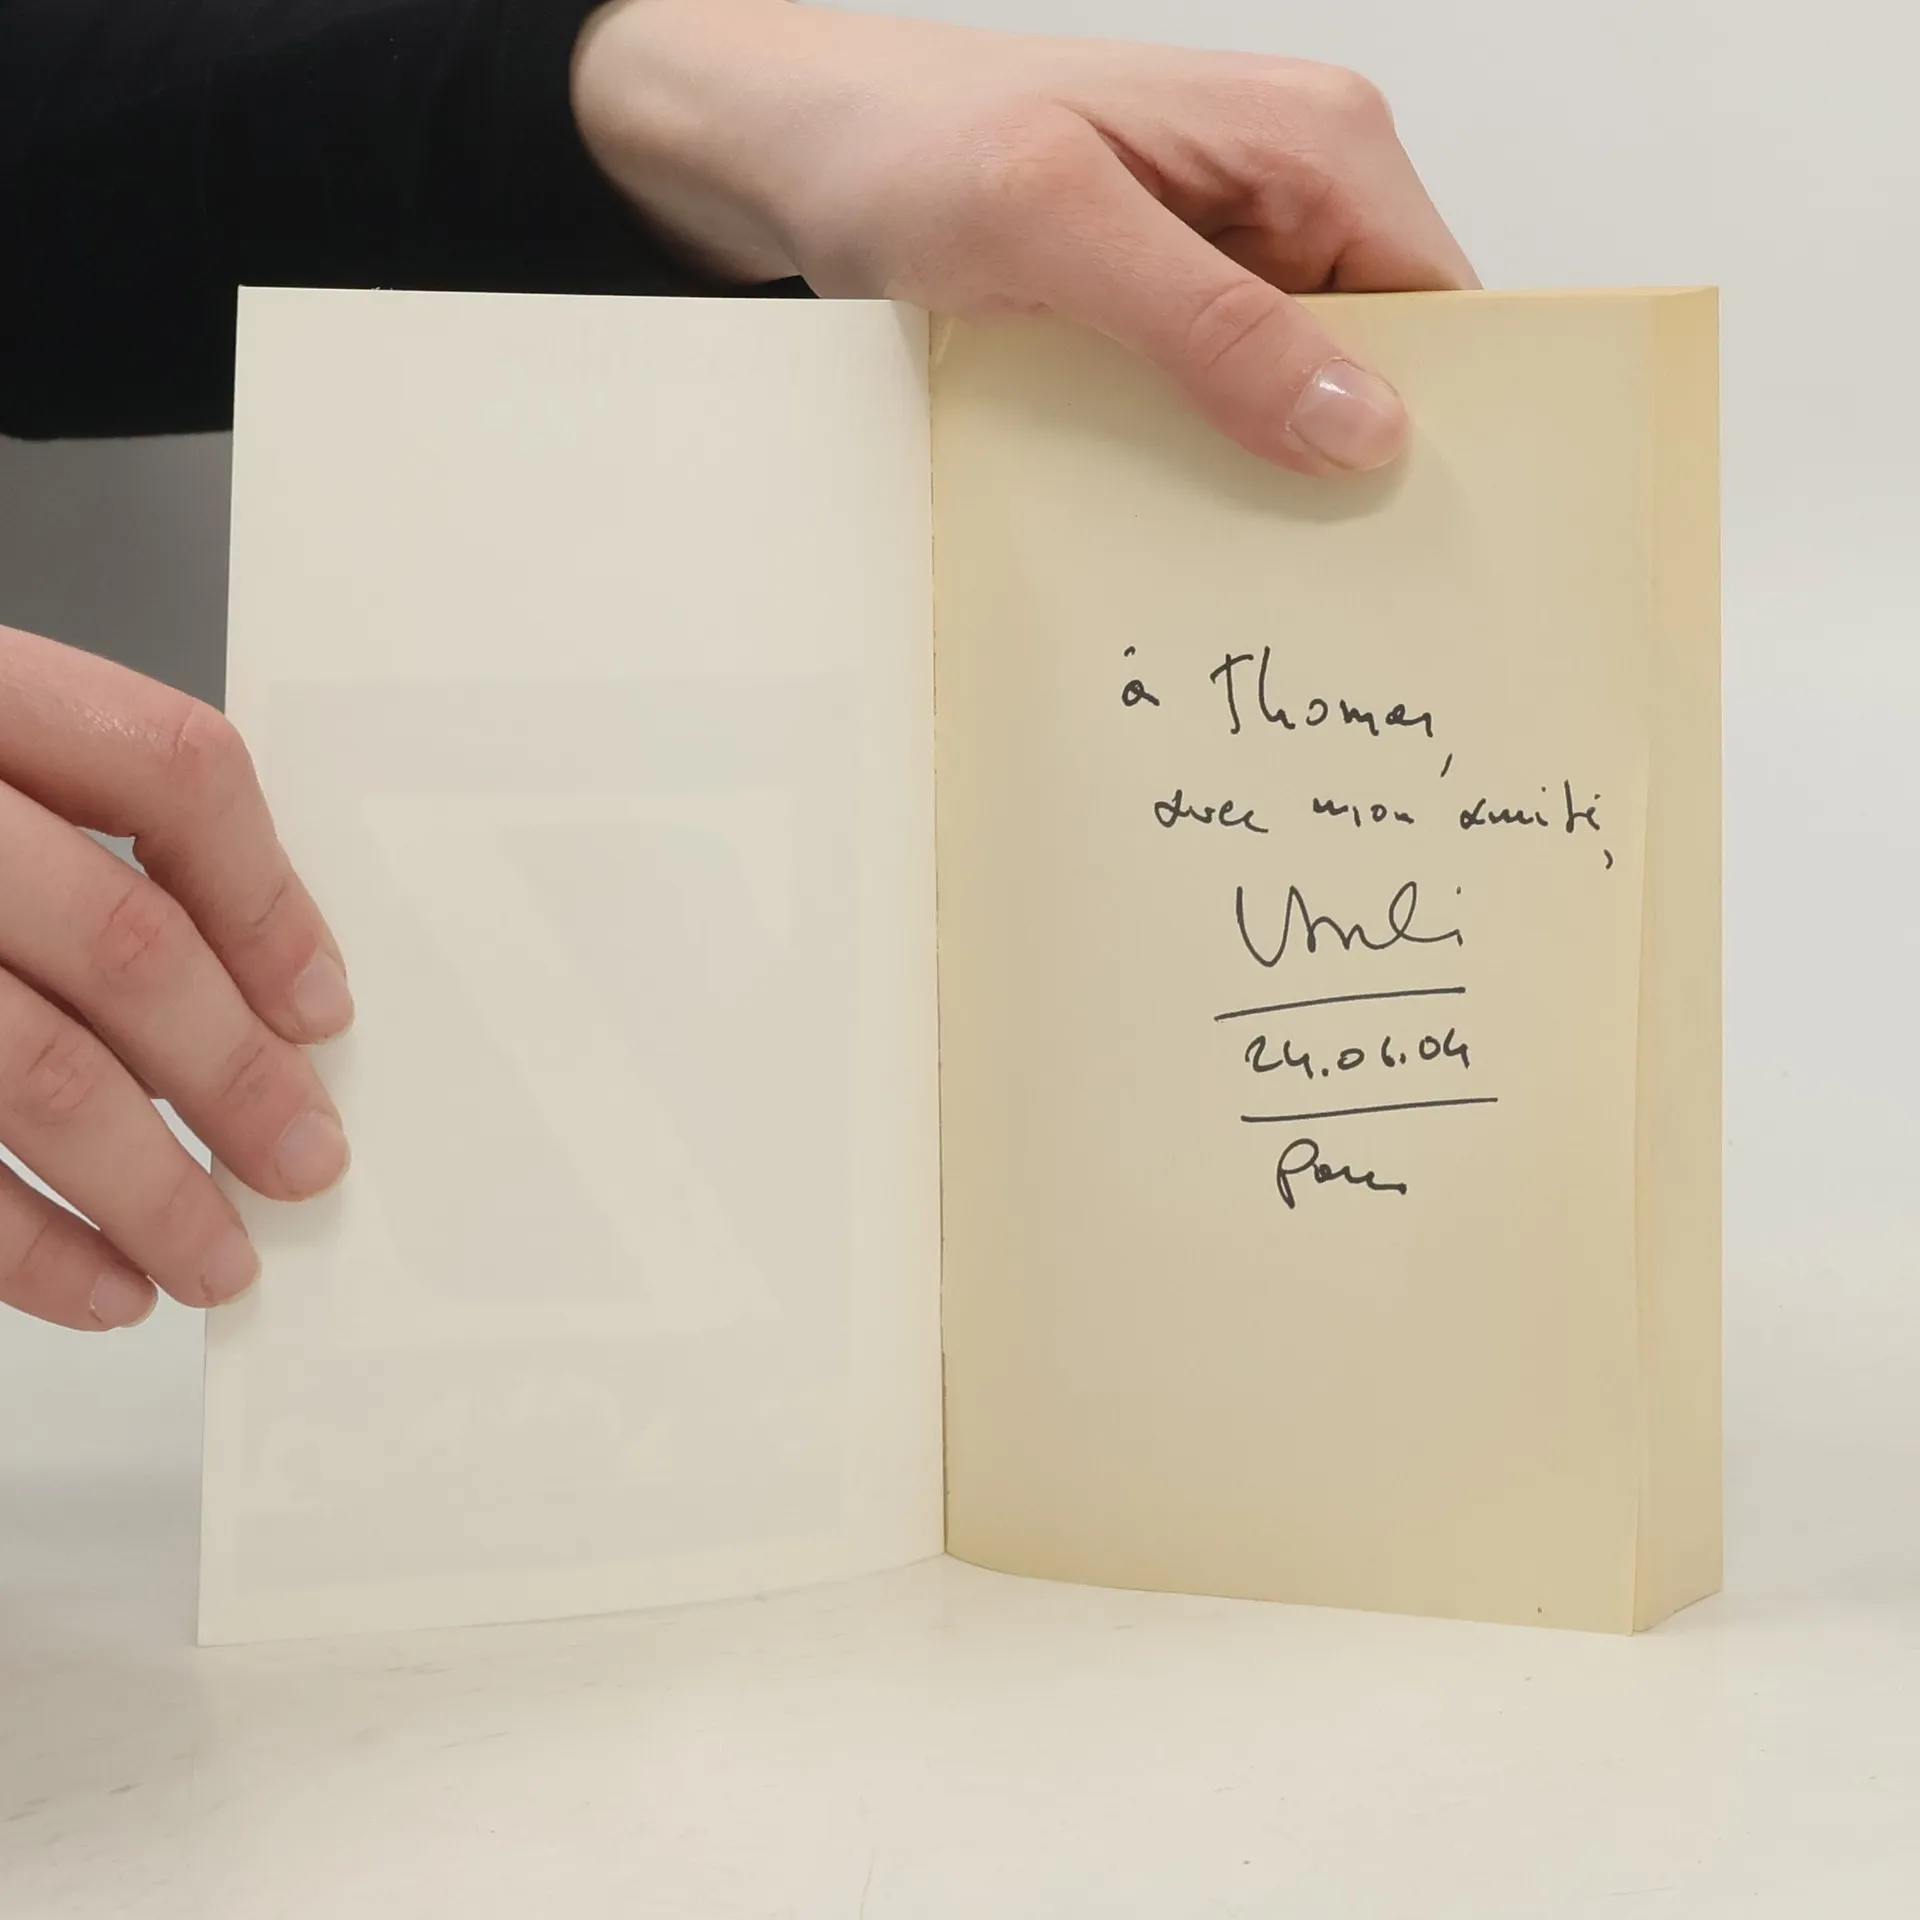 à Thomas,
avec mon amitié,
24.06.04
Paris